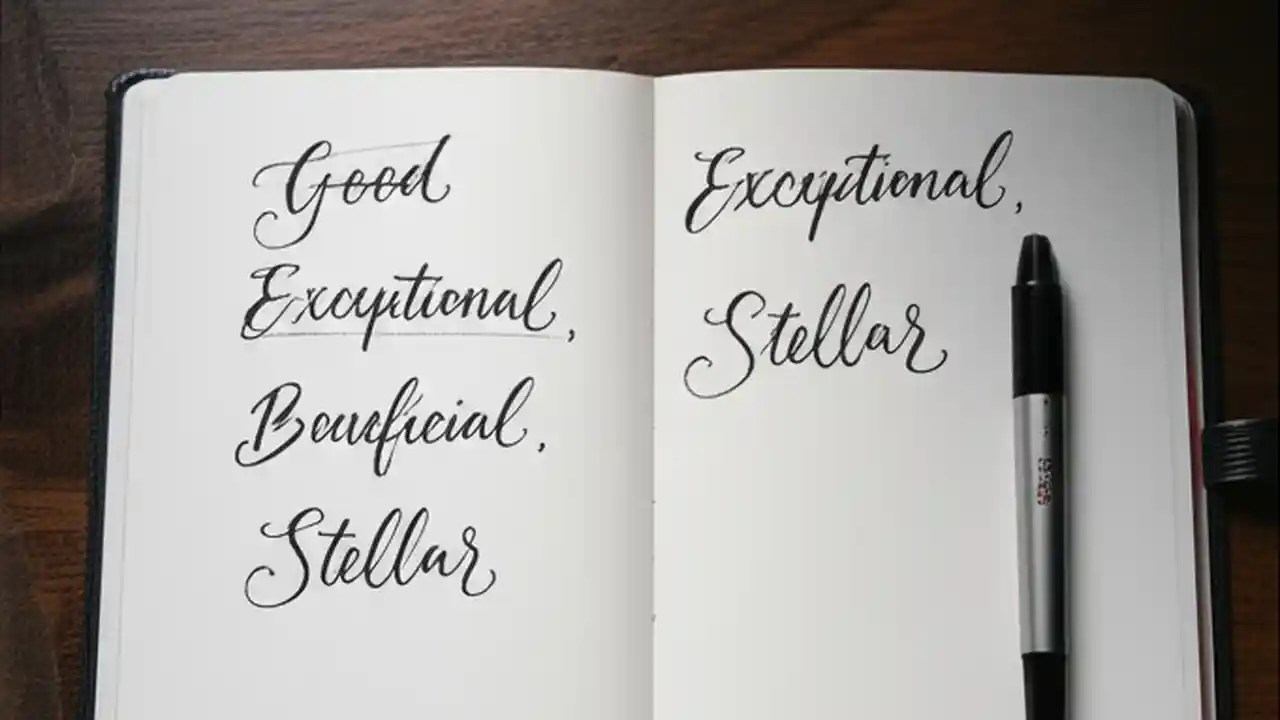 Good
Exceptional,
Beneficial,
Stellar
Exceptional,
Stellar